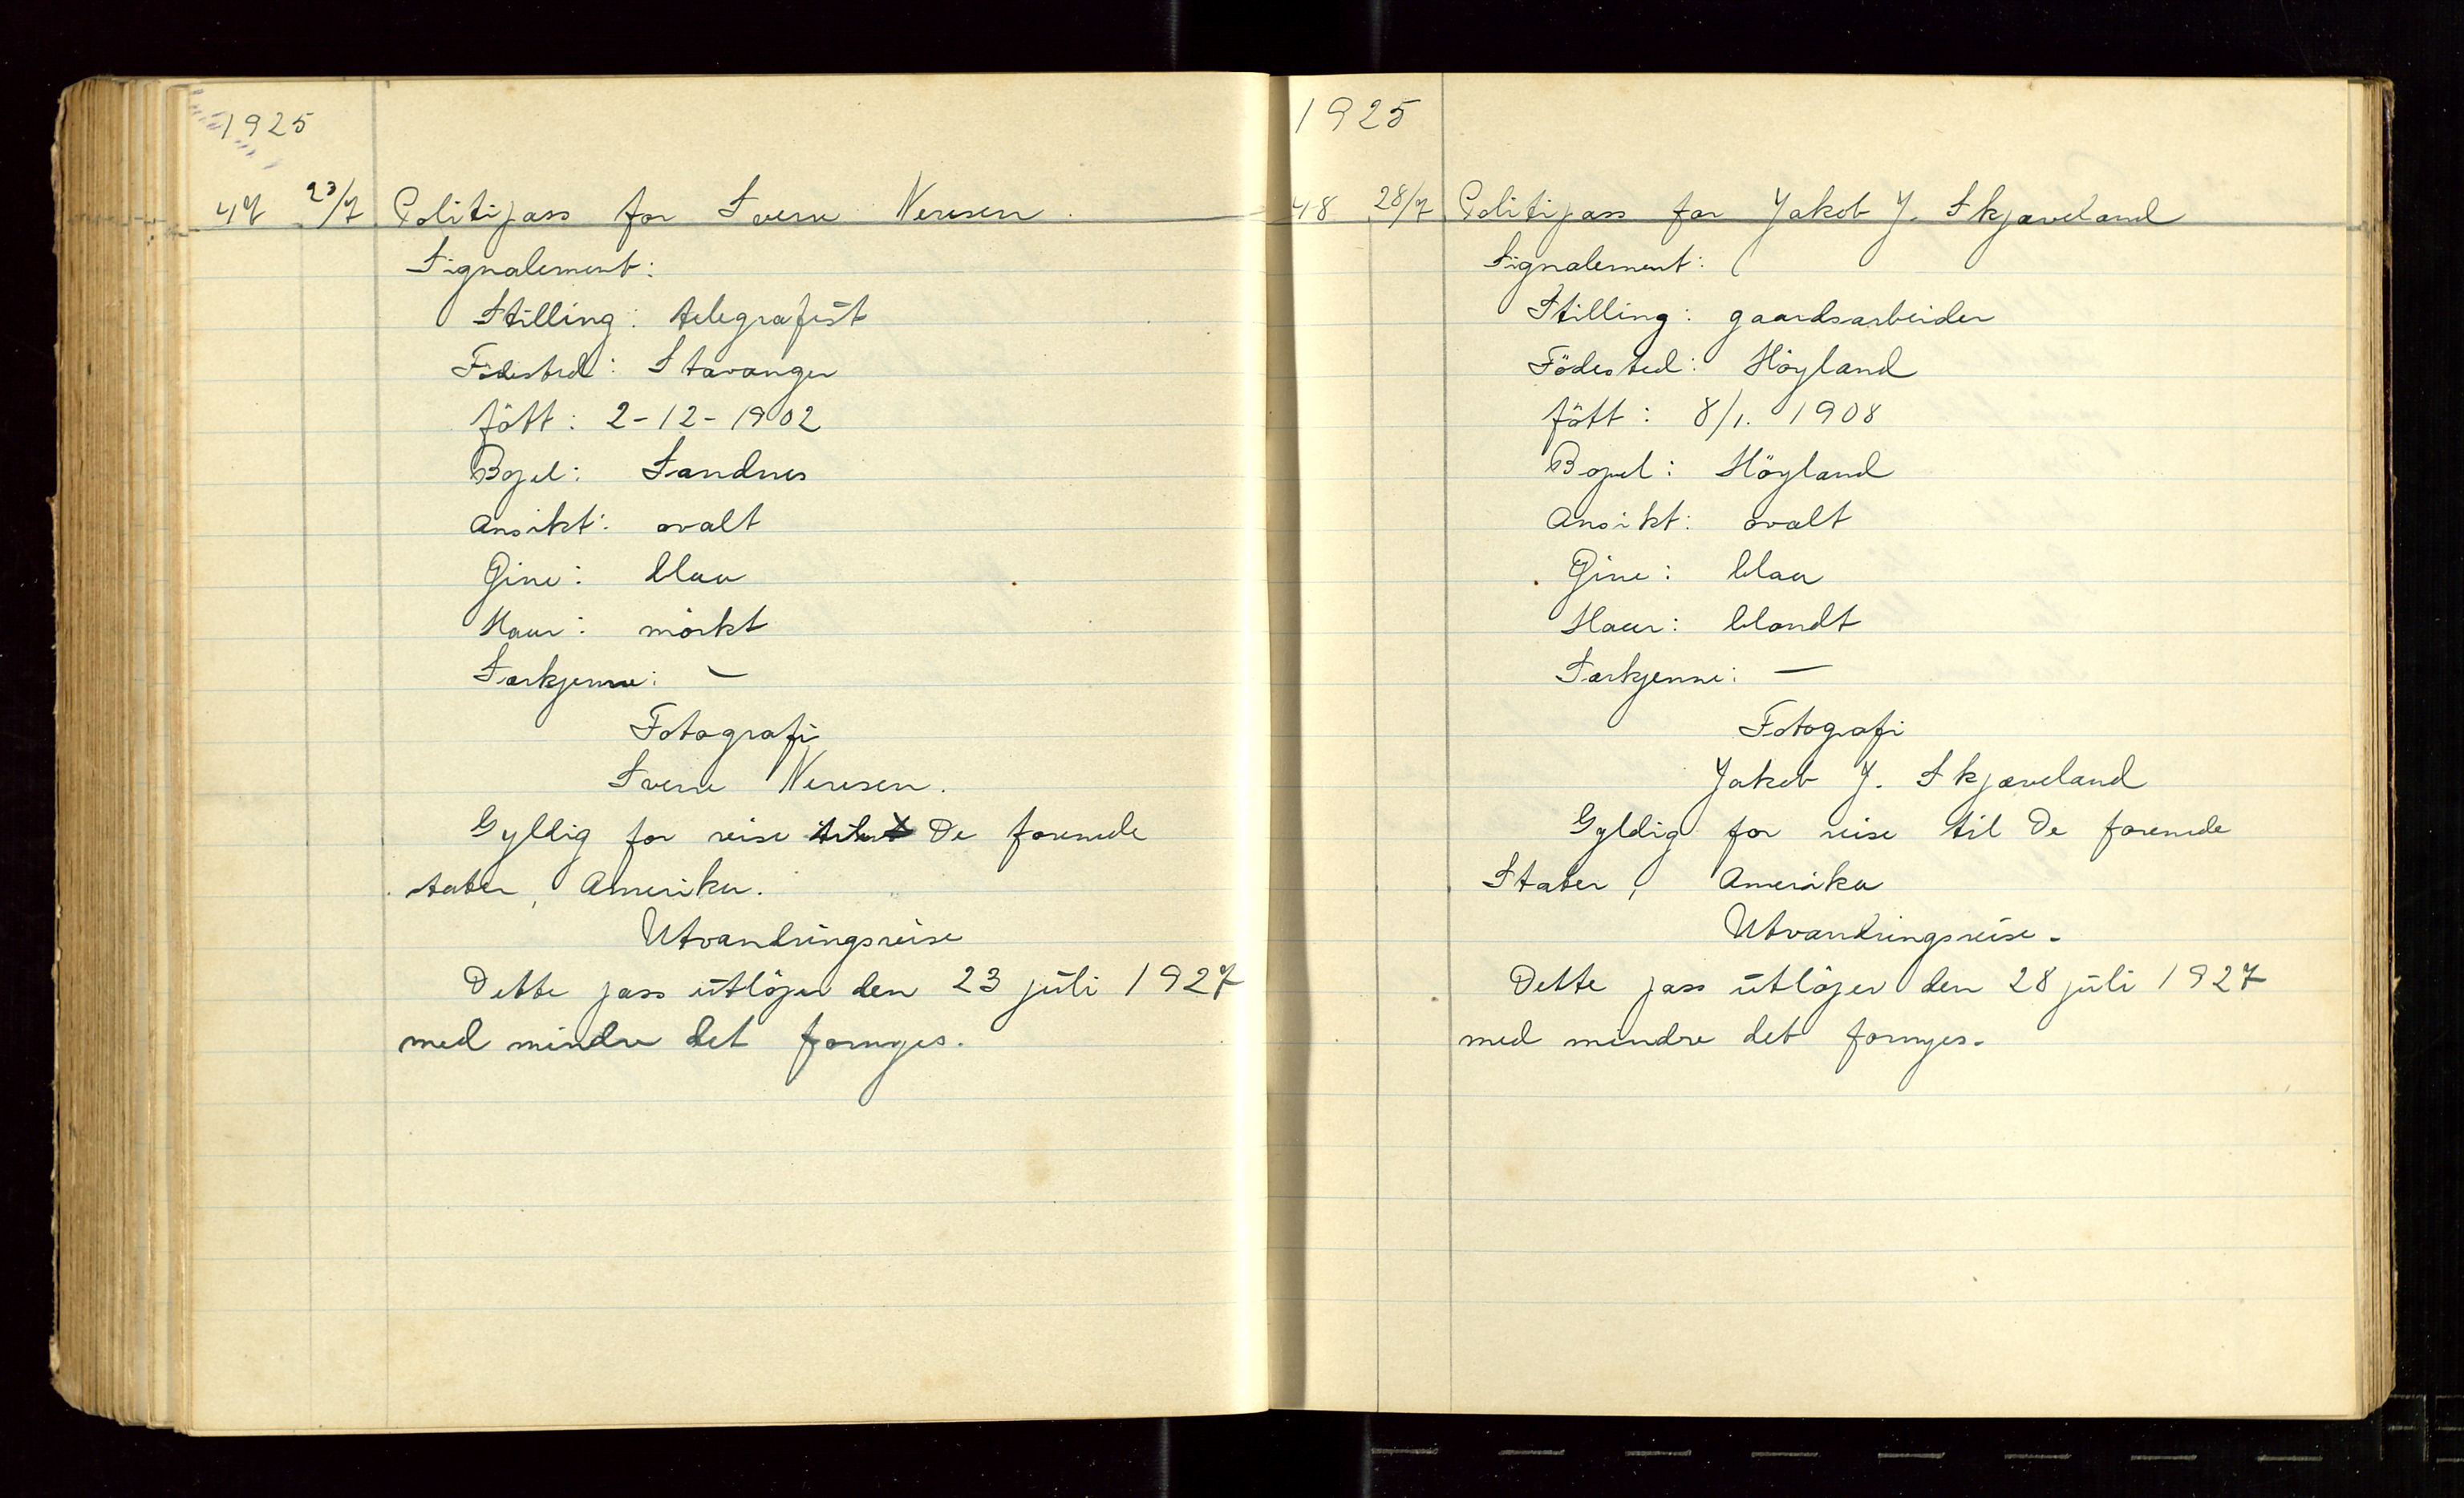 1925
47 23/7 Politipass for Sverre Neresen.
Signalement:
Stilling: telegrafist
Födested: Stavanger
född: 2-12-1902
Bopel: Sandnes
Ansikt: ovalt
Öine: blaa
Haar: mörkt
Særkjenne: —
Fotografi
Sverre Neresen.
Gyldig for reise De forenede
stater, Amerika.
Utvandringsreise
Dette pass utlöper den 23 juli 1927
med mindre det fornyes.
1925
48 28/7 Politipass for Jakob J. Skjæveland
Signalement:
Stilling: gaardsarbeider
Födested: Höyland
født: 8/1. 1908
Bopel: Höyland
Ansikt: ovalt
Öine: blaa
Haar: blondt
Særkjenne: —
Fotografi
Jakob J. Skjæveland
Gyldig for reise til De forenede
Stater, Amerika
Utvandringsreise.
Dette pass utlöper den 28 juli 1927
med mindre det fornyes.